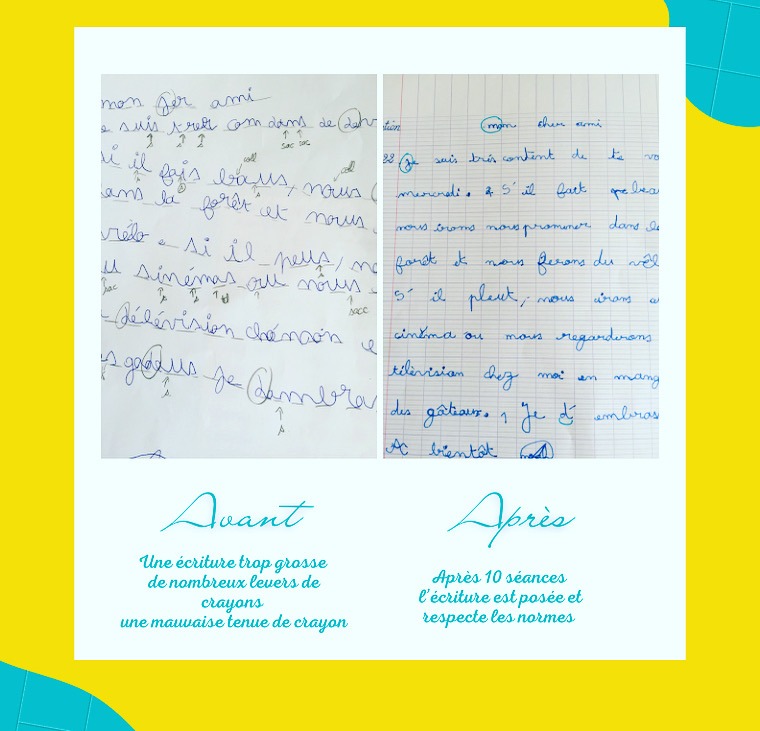 mon jer ami
suis trer com dans de
si il fais baus, nous
dans la forêt et nous
si il peus,
sinémas ou nous
délévision chónsön e
godaus Je dambra
mon cher ami
Je suis très content de te vo
mercredi. S'il fait bea
nous irons nous promener dans le
forêt et nous ferons du vél
S' il pleut, nous irons a
cinéma ou nous regarderons
télévision chez moi en mang
des gâteaux. Je d' embras
A bientôt
Avant
Une écriture trop grosse
de nombreux levers de
crayons
une mauvaise tenue de crayon
Après
Après 10 séances
l'écriture est posée et
respecte les normes